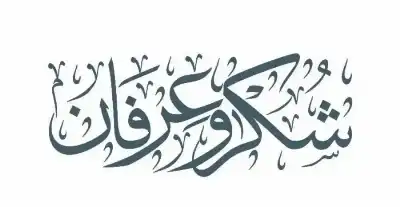 شُكر وَعِرفَان